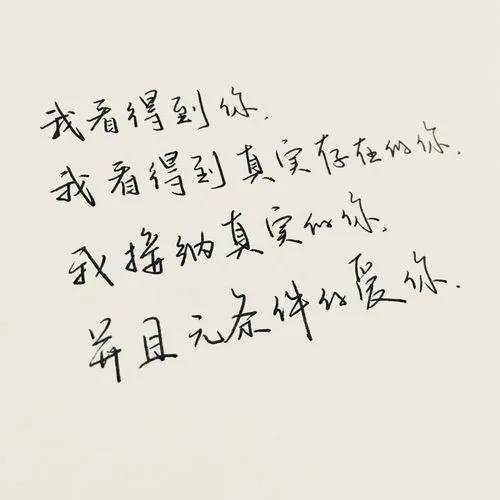 我看得到你.
我看得到真实存在的你.
我接纳真实的你.
并且无条件的爱你.